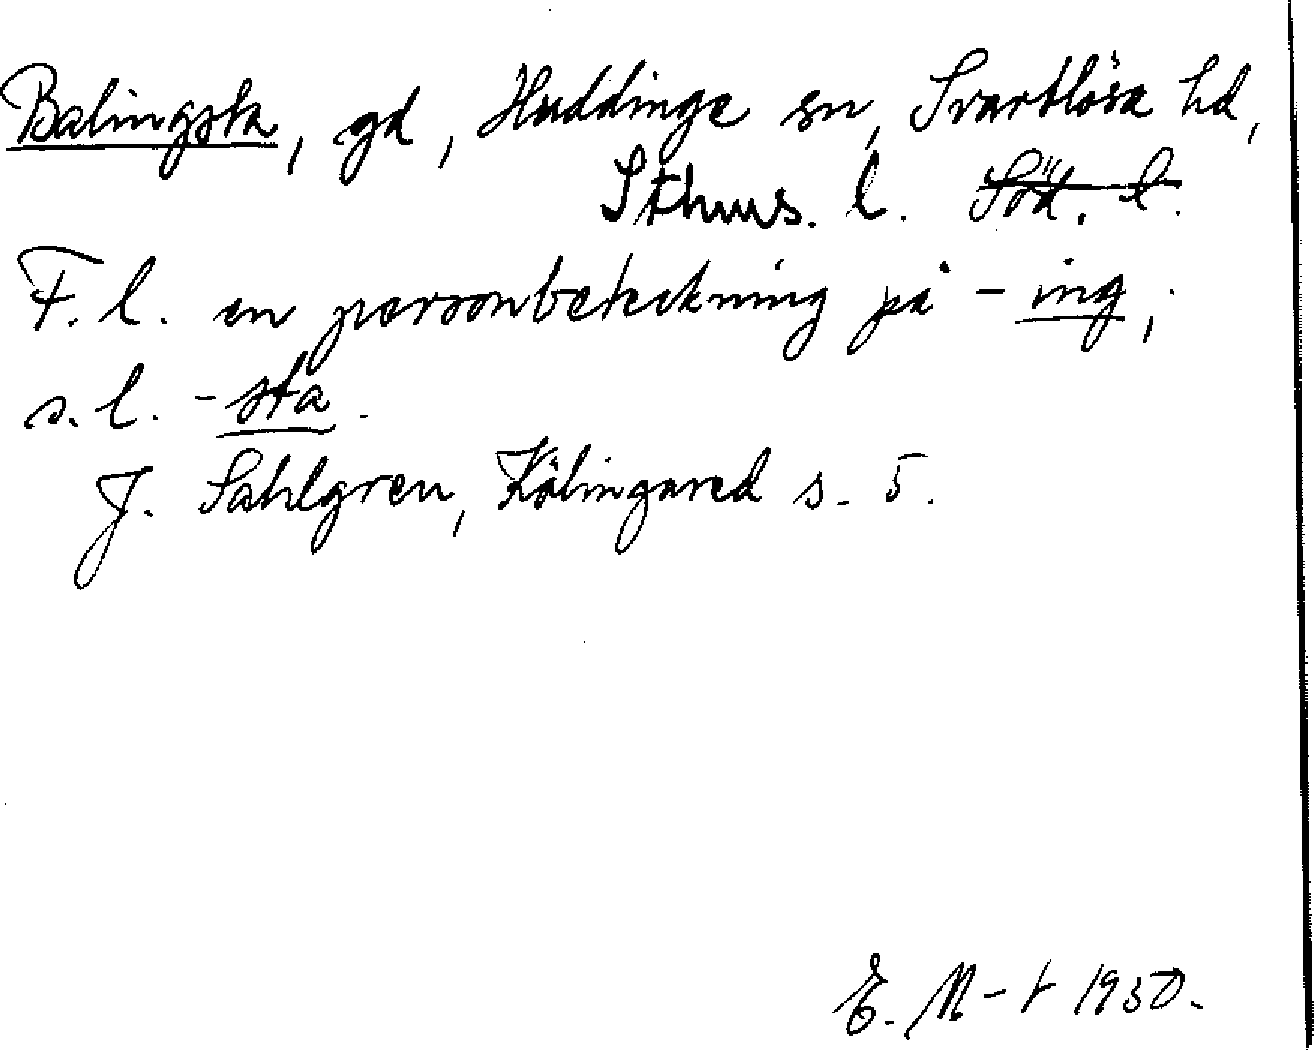 Balingsta, gd, Huddinge sn, Svartlösa hd,
Sthms. l. Söd. l.
F. l. en personbeteckning på -ing;
s. l. -sta.
J. Sahlgren, Kölingared s. 5.
E. M-t 1930.